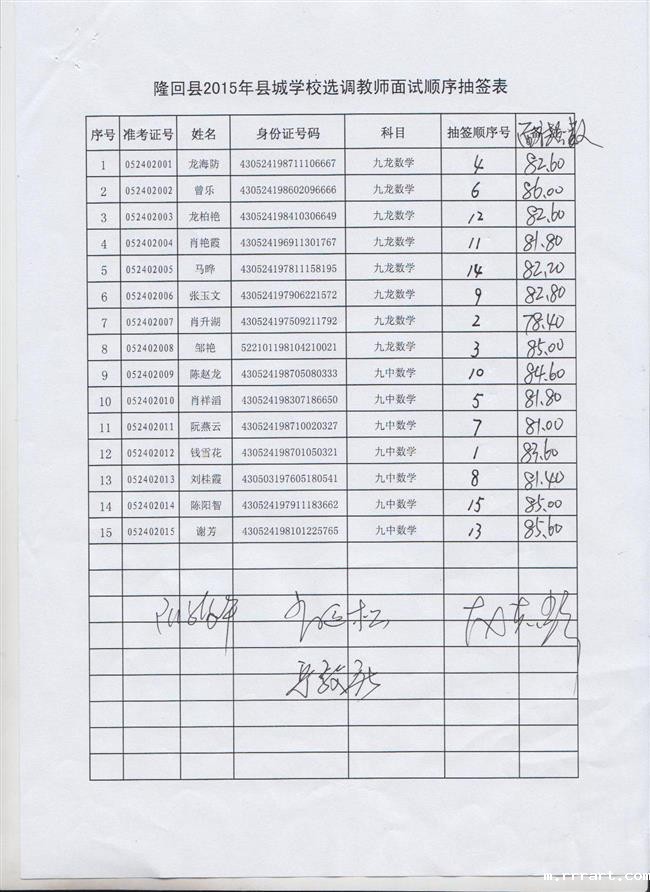 隆回县2015年县城学校选调教师面试顺序抽签表
序号 准考证号 姓名 身份证号码 科目 抽签顺序号
1 052402001 龙海防 430524198711106667 九龙数学 4 82.60
2 052402002 曾乐 430524198602096666 九龙数学 6 86.00
3 052402003 龙柏艳 430524198410306649 九龙数学 12 82.60
4 052402004 肖艳霞 430524196911301767 九龙数学 11 81.80
5 052402005 马晔 430524197811158195 九龙数学 14 82.20
6 052402006 张玉文 430524197906221572 九龙数学 9 82.80
7 052402007 肖升湖 430524197509211792 九龙数学 2 78.40
8 052402008 邹艳 522101198104210021 九龙数学 3 85.00
9 052402009 陈赵龙 430524198705080333 九中数学 10 84.60
10 052402010 肖祥滔 430524198307186650 九中数学 5 81.80
11 052402011 阮燕云 430524198710020327 九中数学 7 81.00
12 052402012 钱雪花 430524198701050321 九中数学 1 83.60
13 052402013 刘桂霞 430503197605180541 九中数学 8 81.40
14 052402014 陈阳智 430524197911183662 九中数学 15 85.00
15 052402015 谢芳 430524198101225765 九中数学 13 85.60
m.rrrart.com